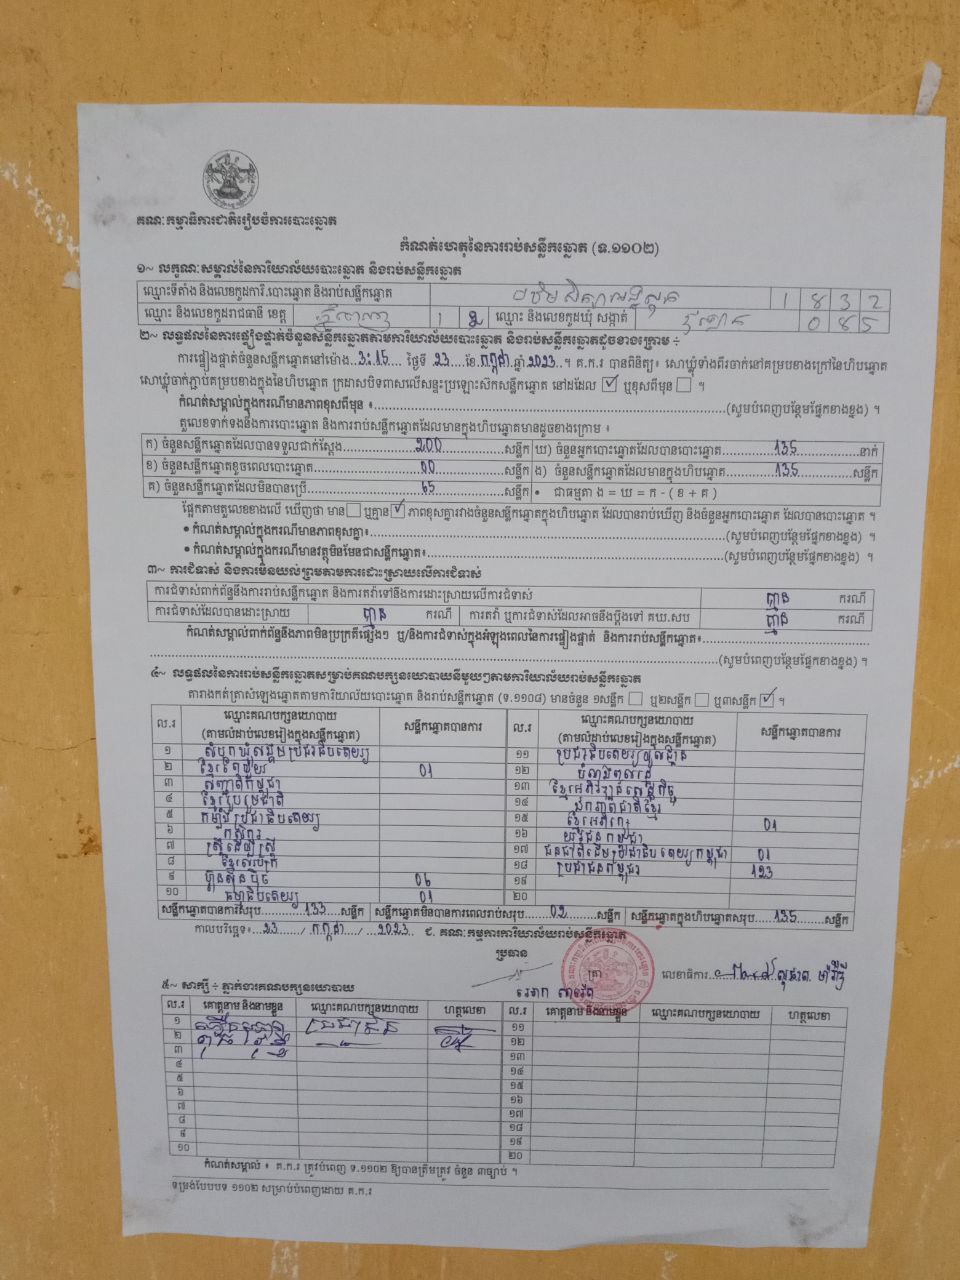 គណៈកម្មាធិការជាតិរៀបចំការបោះឆ្នោត
កំណត់ហេតុនៃការរាប់សន្លឹកឆ្នោត (ទ.១១០២)
១~ លក្ខណៈសម្គាល់នៃការិយាល័យបោះឆ្នោត និងរាប់សន្លឹកឆ្នោត
ឈ្មោះទីតាំង និងលេខកូដការិ.បោះឆ្នោត និងរាប់សន្លឹកឆ្នោត 1 8 3 2
ឈ្មោះ និងលេខកូដរាជធានី ខេត្ត 1 2 ឈ្មោះ និងលេខកូដឃុំ សង្កាត់ 0 8 5
២~ លទ្ធផលនៃការផ្ទៀងផ្ទាត់ចំនួនសន្លឹកឆ្នោតតាមការិយាល័យបោះឆ្នោត និងរាប់សន្លឹកឆ្នោតដូចខាងក្រោម ÷
ការផ្ទៀងផ្ទាត់ចំនួនសន្លឹកឆ្នោតនៅម៉ោង 3:15 ថ្ងៃទី 23 ខែ កក្កដា ឆ្នាំ 2023 ។ គ.ក.រ បានពិនិត្យ៖ សោឃ្លុំទាំងពីរចាក់នៅគម្របខាងក្រៅនៃហិបឆ្នោត
សោឃ្លុំចាក់ភ្ជាប់គម្របខាងក្នុងនៃហិបឆ្នោត ក្រដាសបិទពាសលើសន្ទះប្រឡោះសិកសន្លឹកឆ្នោត នៅដដែល ☑ ឬខុសពីមុន ☐ ។
កំណត់សម្គាល់ក្នុងករណីមានភាពខុសពីមុន ៖ (សូមបំពេញបន្ថែមផ្នែកខាងខ្នង) ។
តួលេខទាក់ទងនឹងការបោះឆ្នោត និងការរាប់សន្លឹកឆ្នោតដែលមានក្នុងហិបឆ្នោតមានដូចខាងក្រោម ៖
ក) ចំនួនសន្លឹកឆ្នោតដែលបានទទួលជាក់ស្តែង 200 សន្លឹក ឃ) ចំនួនអ្នកបោះឆ្នោតដែលបានបោះឆ្នោត 135 នាក់
ខ) ចំនួនសន្លឹកឆ្នោតខូចពេលបោះឆ្នោត 00 សន្លឹក ង) ចំនួនសន្លឹកឆ្នោតដែលមានក្នុងហិបឆ្នោត 135 សន្លឹក
គ) ចំនួនសន្លឹកឆ្នោតដែលមិនបានប្រើ 65 សន្លឹក • ជាធម្មតា ង = ឃ = ក - ( ខ + គ )
ផ្អែកតាមតួលេខខាងលើ ឃើញថា មាន ☐ ឬគ្មាន ☑ ភាពខុសគ្នារវាងចំនួនសន្លឹកឆ្នោតក្នុងហិបឆ្នោត ដែលបានរាប់ឃើញ និងចំនួនអ្នកបោះឆ្នោត ដែលបានបោះឆ្នោត ។
• កំណត់សម្គាល់ក្នុងករណីមានភាពខុសគ្នា៖ (សូមបំពេញបន្ថែមផ្នែកខាងខ្នង) ។
• កំណត់សម្គាល់ក្នុងករណីមានវត្ថុមិនមែនជាសន្លឹកឆ្នោត៖ (សូមបំពេញបន្ថែមផ្នែកខាងខ្នង) ។
៣~ ការជំទាស់ និងការមិនយល់ព្រមតាមការដោះស្រាយលើការជំទាស់
ការជំទាស់ពាក់ព័ន្ធនឹងការរាប់សន្លឹកឆ្នោត និងការតវ៉ាទៅនឹងការដោះស្រាយលើការជំទាស់ គ្មាន ករណី
ការជំទាស់ដែលបានដោះស្រាយ គ្មាន ករណី ការតវ៉ា ឬការជំទាស់ដែលអាចនឹងប្តឹងទៅ គឃ.សប គ្មាន ករណី
កំណត់សម្គាល់ពាក់ព័ន្ធនឹងភាពមិនប្រក្រតីផ្សេងៗ ឬ/និងការជំទាស់ក្នុងអំឡុងពេលនៃការផ្ទៀងផ្ទាត់ និងការរាប់សន្លឹកឆ្នោត៖
(សូមបំពេញបន្ថែមផ្នែកខាងខ្នង) ។
៤~ លទ្ធផលនៃការរាប់សន្លឹកឆ្នោតសម្រាប់គណបក្សនយោបាយនីមួយៗតាមការិយាល័យរាប់សន្លឹកឆ្នោត
តារាងកត់ត្រាសំឡេងឆ្នោតតាមការិយាល័យបោះឆ្នោត និងរាប់សន្លឹកឆ្នោត (ទ.១១០៨) មានចំនួន ១សន្លឹក ☐ ឬ២សន្លឹក ☐ ឬ៣សន្លឹក ☑ ។
ល.រ ឈ្មោះគណបក្សនយោបាយ (តាមលំដាប់លេខរៀងក្នុងសន្លឹកឆ្នោត) សន្លឹកឆ្នោតបានការ ល.រ ឈ្មោះគណបក្សនយោបាយ (តាមលំដាប់លេខរៀងក្នុងសន្លឹកឆ្នោត) សន្លឹកឆ្នោតបានការ
១ សំបុកឃ្មុំសង្គមប្រជាធិបតេយ្យ ១១
២ ខ្មែរតែមួយ 01 ១២
៣ សញ្ជាតិកម្ពុជា ១៣ ខ្មែរអភិវឌ្ឍន៍សេដ្ឋកិច្ច
៤ ខ្មែររួបរួមជាតិ ១៤ ឯកភាពជាតិខ្មែរ
៥ កម្លាំងប្រជាធិបតេយ្យ ១៥ ខ្មែរអភិរក្ស 01
៦ កសិករ ១៦ យុវជនកម្ពុជា
៧ ស្ត្រីដើម្បីស្ត្រី ១៧ ជនជាតិដើមប្រជាធិបតេយ្យកម្ពុជា 01
៨ ខ្មែរឈប់ក្រ ១៨ ប្រជាជនកម្ពុជា 123
៩ ហ៊្វុនស៊ិនប៉ិច 06 ១៩
១០ ធម្មាធិបតេយ្យ 01 ២០
សន្លឹកឆ្នោតបានការសរុប 133 សន្លឹក សន្លឹកឆ្នោតមិនបានការពេលរាប់សរុប 02 សន្លឹក សន្លឹកឆ្នោតក្នុងហិបឆ្នោតសរុប 135 សន្លឹក
កាលបរិច្ឆេទ៖ 23 / កក្កដា / 2023 ជ. គណៈកម្មការការិយាល័យរាប់សន្លឹកឆ្នោត
ប្រធាន
ត្រា លេខាធិការ
៥~ សាក្សី ÷ ភ្នាក់ងារគណបក្សនយោបាយ
ល.រ គោត្តនាម និងនាមខ្លួន ឈ្មោះគណបក្សនយោបាយ ហត្ថលេខា ល.រ គោត្តនាម និងនាមខ្លួន ឈ្មោះគណបក្សនយោបាយ ហត្ថលេខា
១ ប្រជាជន ១១
២ ១២
៣ ១៣
៤ ១៤
៥ ១៥
៦ ១៦
៧ ១៧
៨ ១៨
៩ ១៩
១០ ២០
កំណត់សម្គាល់ ៖ គ.ក.រ ត្រូវបំពេញ ទ.១១០២ ឱ្យបានត្រឹមត្រូវ ចំនួន ៣ច្បាប់ ។
ទម្រង់បែបបទ ១១០២ សម្រាប់បំពេញដោយ គ.ក.រ